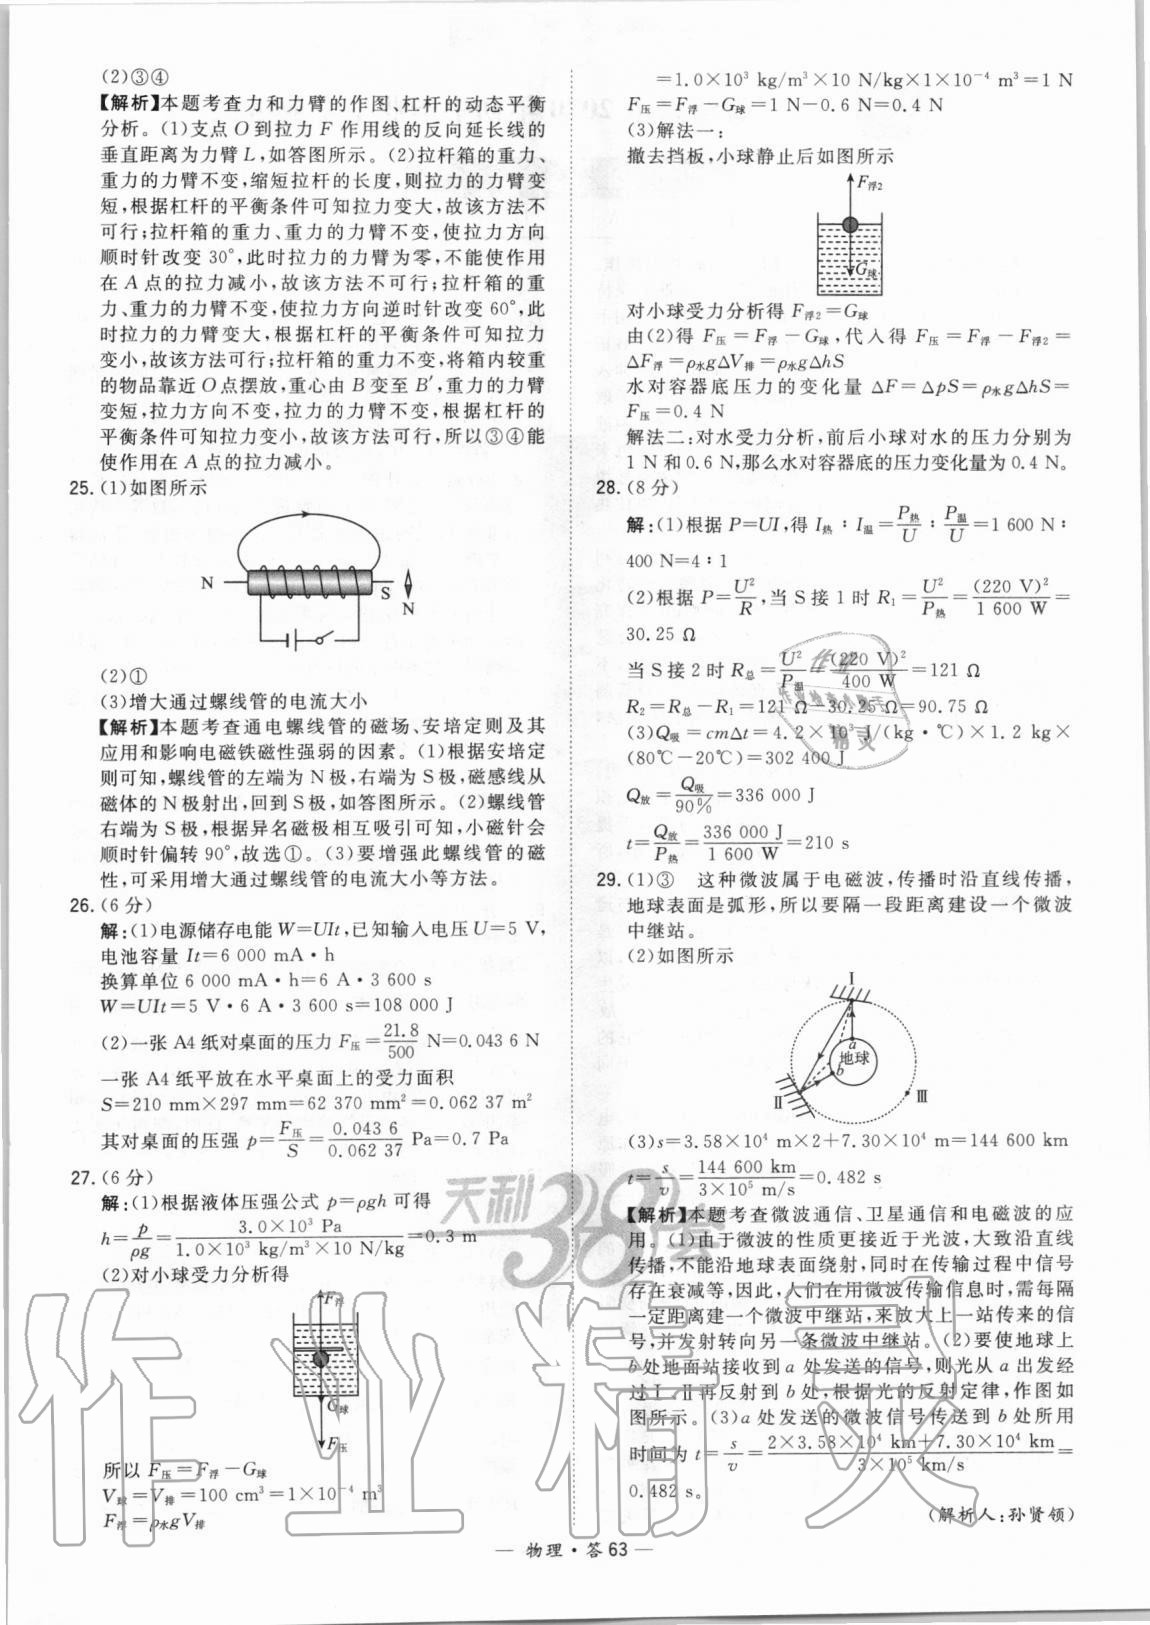 (2)③④
【解析】本题考查力和力臂的作图、杠杆的动态平衡
分析。(1)支点O到拉力F作用线的反向延长线的
垂直距离为力臂L,如答图所示。(2)拉杆箱的重力、
重力的力臂不变,缩短拉杆的长度,则拉力的力臂变
短,根据杠杆的平衡条件可知拉力变大,故该方法不
可行;拉杆箱的重力、重力的力臂不变,使拉力方向
顺时针改变30°,此时拉力的力臂为零,不能使作用
在A点的拉力减小,故该方法不可行;拉杆箱的重
力、重力的力臂不变,使拉力方向逆时针改变60°,此
时拉力的力臂变大,根据杠杆的平衡条件可知拉力
变小,故该方法可行;拉杆箱的重力不变,将箱内较重
的物品靠近O点摆放,重心由B变至B′,重力的力臂
变短,拉力方向不变,拉力的力臂不变,根据杠杆的
平衡条件可知拉力变小,故该方法可行,所以③④能
使作用在A点的拉力减小。
25.(1)如图所示
N
S
N
(2)①
(3)增大通过螺线管的电流大小
【解析】本题考查通电螺线管的磁场、安培定则及其
应用和影响电磁铁磁性强弱的因素。(1)根据安培定
则可知,螺线管的左端为N极,右端为S极,磁感线从
磁体的N极射出,回到S极,如答图所示。(2)螺线管
右端为S极,根据异名磁极相互吸引可知,小磁针会
顺时针偏转90°,故选①。(3)要增强此螺线管的磁
性,可采用增大通过螺线管的电流大小等方法。
26.(6分)
解:(1)电源储存电能W=UIt,已知输入电压U=5 V,
电池容量It=6 000 mA·h
换算单位6 000 mA·h=6 A·3 600 s
W=UIt=5 V·6 A·3 600 s=108 000 J
(2)一张A4纸对桌面的压力F压=21.8/500 N=0.043 6 N
一张A4纸平放在水平桌面上的受力面积
S=210 mm×297 mm=62 370 mm²=0.062 37 m²
其对桌面的压强p=F压/S=0.043 6/0.062 37 Pa=0.7 Pa
27.(6分)
解:(1)根据液体压强公式p=ρgh可得
h=p/ρg=3.0×10³ Pa/1.0×10³ kg/m³×10 N/kg=0.3 m
(2)对小球受力分析得
F浮
G球
F压
所以F压=F浮-G球
V球=V排=100 cm³=1×10⁻⁴ m³
F浮=ρ水gV排
=1.0×10³ kg/m³×10 N/kg×1×10⁻⁴ m³=1 N
F压=F浮-G球=1 N-0.6 N=0.4 N
(3)解法一:
撤去挡板,小球静止后如图所示
F浮2
G球
对小球受力分析得F浮2=G球
由(2)得F压=F浮-G球,代入得F压=F浮-F浮2=
ΔF浮=ρ水gΔV排=ρ水gΔhS
水对容器底压力的变化量ΔF=ΔpS=ρ水gΔhS=
F压=0.4 N
解法二:对水受力分析,前后小球对水的压力分别为
1 N和0.6 N,那么水对容器底的压力变化量为0.4 N。
28.(8分)
解:(1)根据P=UI,得I热∶I温=P热/U∶P温/U=1 600 N∶
400 N=4∶1
(2)根据P=U²/R,当S接1时R₁=U²/P热=(220 V)²/1 600 W=
30.25 Ω
当S接2时R总=U²/P温=(220 V)²/400 W=121 Ω
R₂=R总-R₁=121 Ω-30.25 Ω=90.75 Ω
(3)Q吸=cmΔt=4.2×10³ J/(kg·℃)×1.2 kg×
(80℃-20℃)=302 400 J
Q放=Q吸/90%=336 000 J
t=Q放/P热=336 000 J/1 600 W=210 s
29.(1)③ 这种微波属于电磁波,传播时沿直线传播,
地球表面是弧形,所以要隔一段距离建设一个微波
中继站。
(2)如图所示
Ⅰ
a
地球
b
Ⅱ
Ⅲ
(3)s=3.58×10⁴ m×2+7.30×10⁴ m=144 600 km
t=s/v=144 600 km/3×10⁵ m/s=0.482 s
【解析】本题考查微波通信、卫星通信和电磁波的应
用。(1)由于微波的性质更接近于光波,大致沿直线
传播,不能沿地球表面绕射,同时在传输过程中信号
存在衰减等,因此,人们在用微波传输信息时,需每隔
一定距离建一个微波中继站,来放大上一站传来的信
号,并发射转向另一条微波中继站。(2)要使地球上
b处地面站接收到a处发送的信号,则光从a出发经
过Ⅰ、Ⅱ再反射到b处,根据光的反射定律,作图如
图所示。(3)a处发送的微波信号传送到b处所用
时间为t=s/v=2×3.58×10⁴ km+7.30×10⁴ km/3×10⁵ km/s=
0.482 s。
(解析人:孙贤领)
— 物理·答63 —
天利38套
作业精灵